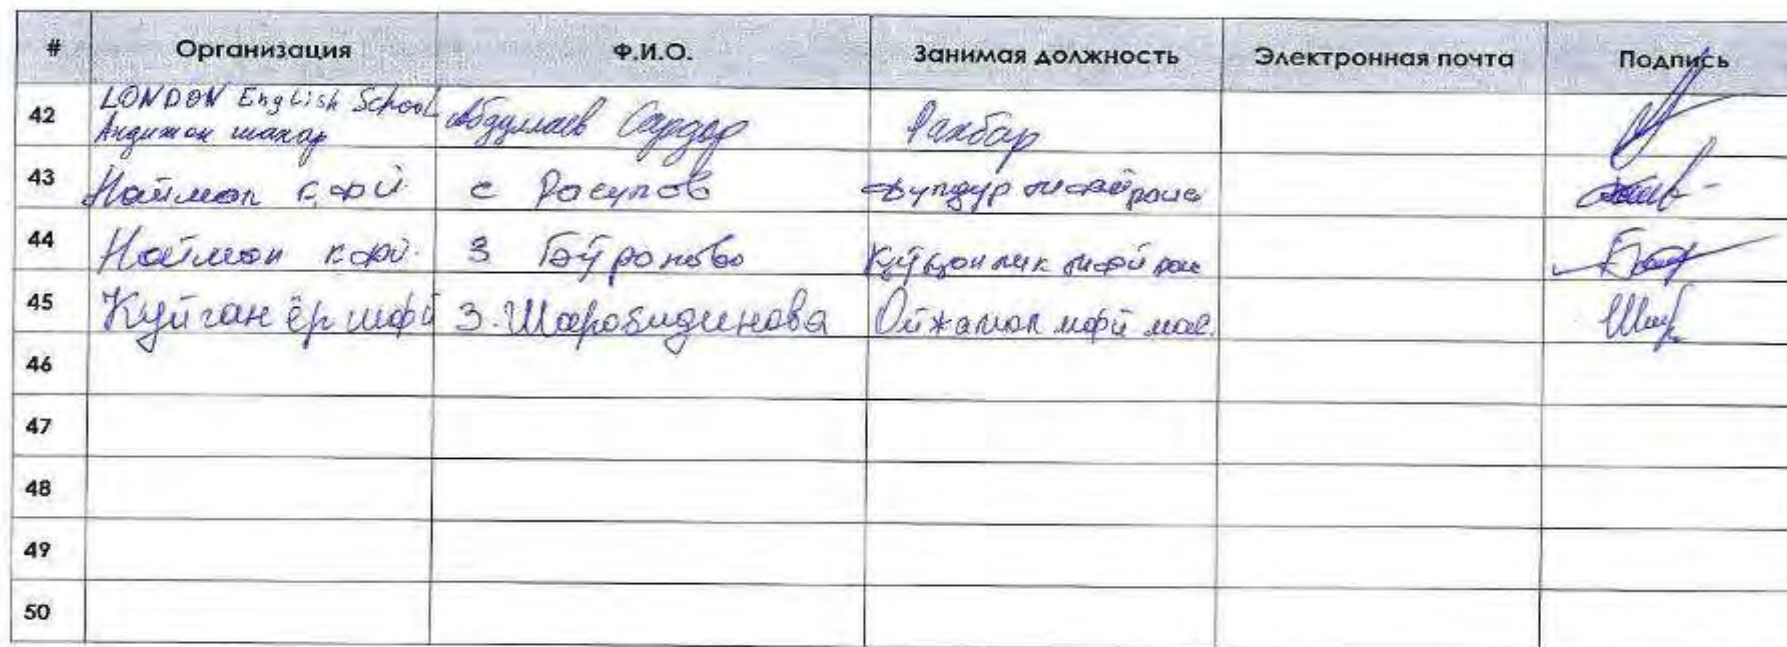 # Организация Ф.И.О. Занимая должность Электронная почта Подпись
42 LONDON English School
Андижон шахар Абдуллаев Сардор Рахбар
43 Найман қфй с Расулов мфй раис
44 Найман қфй З мфй раис
45 Куйган ёр шфй З. Шаробидинова Ойжамол мфй мас.
46
47
48
49
50